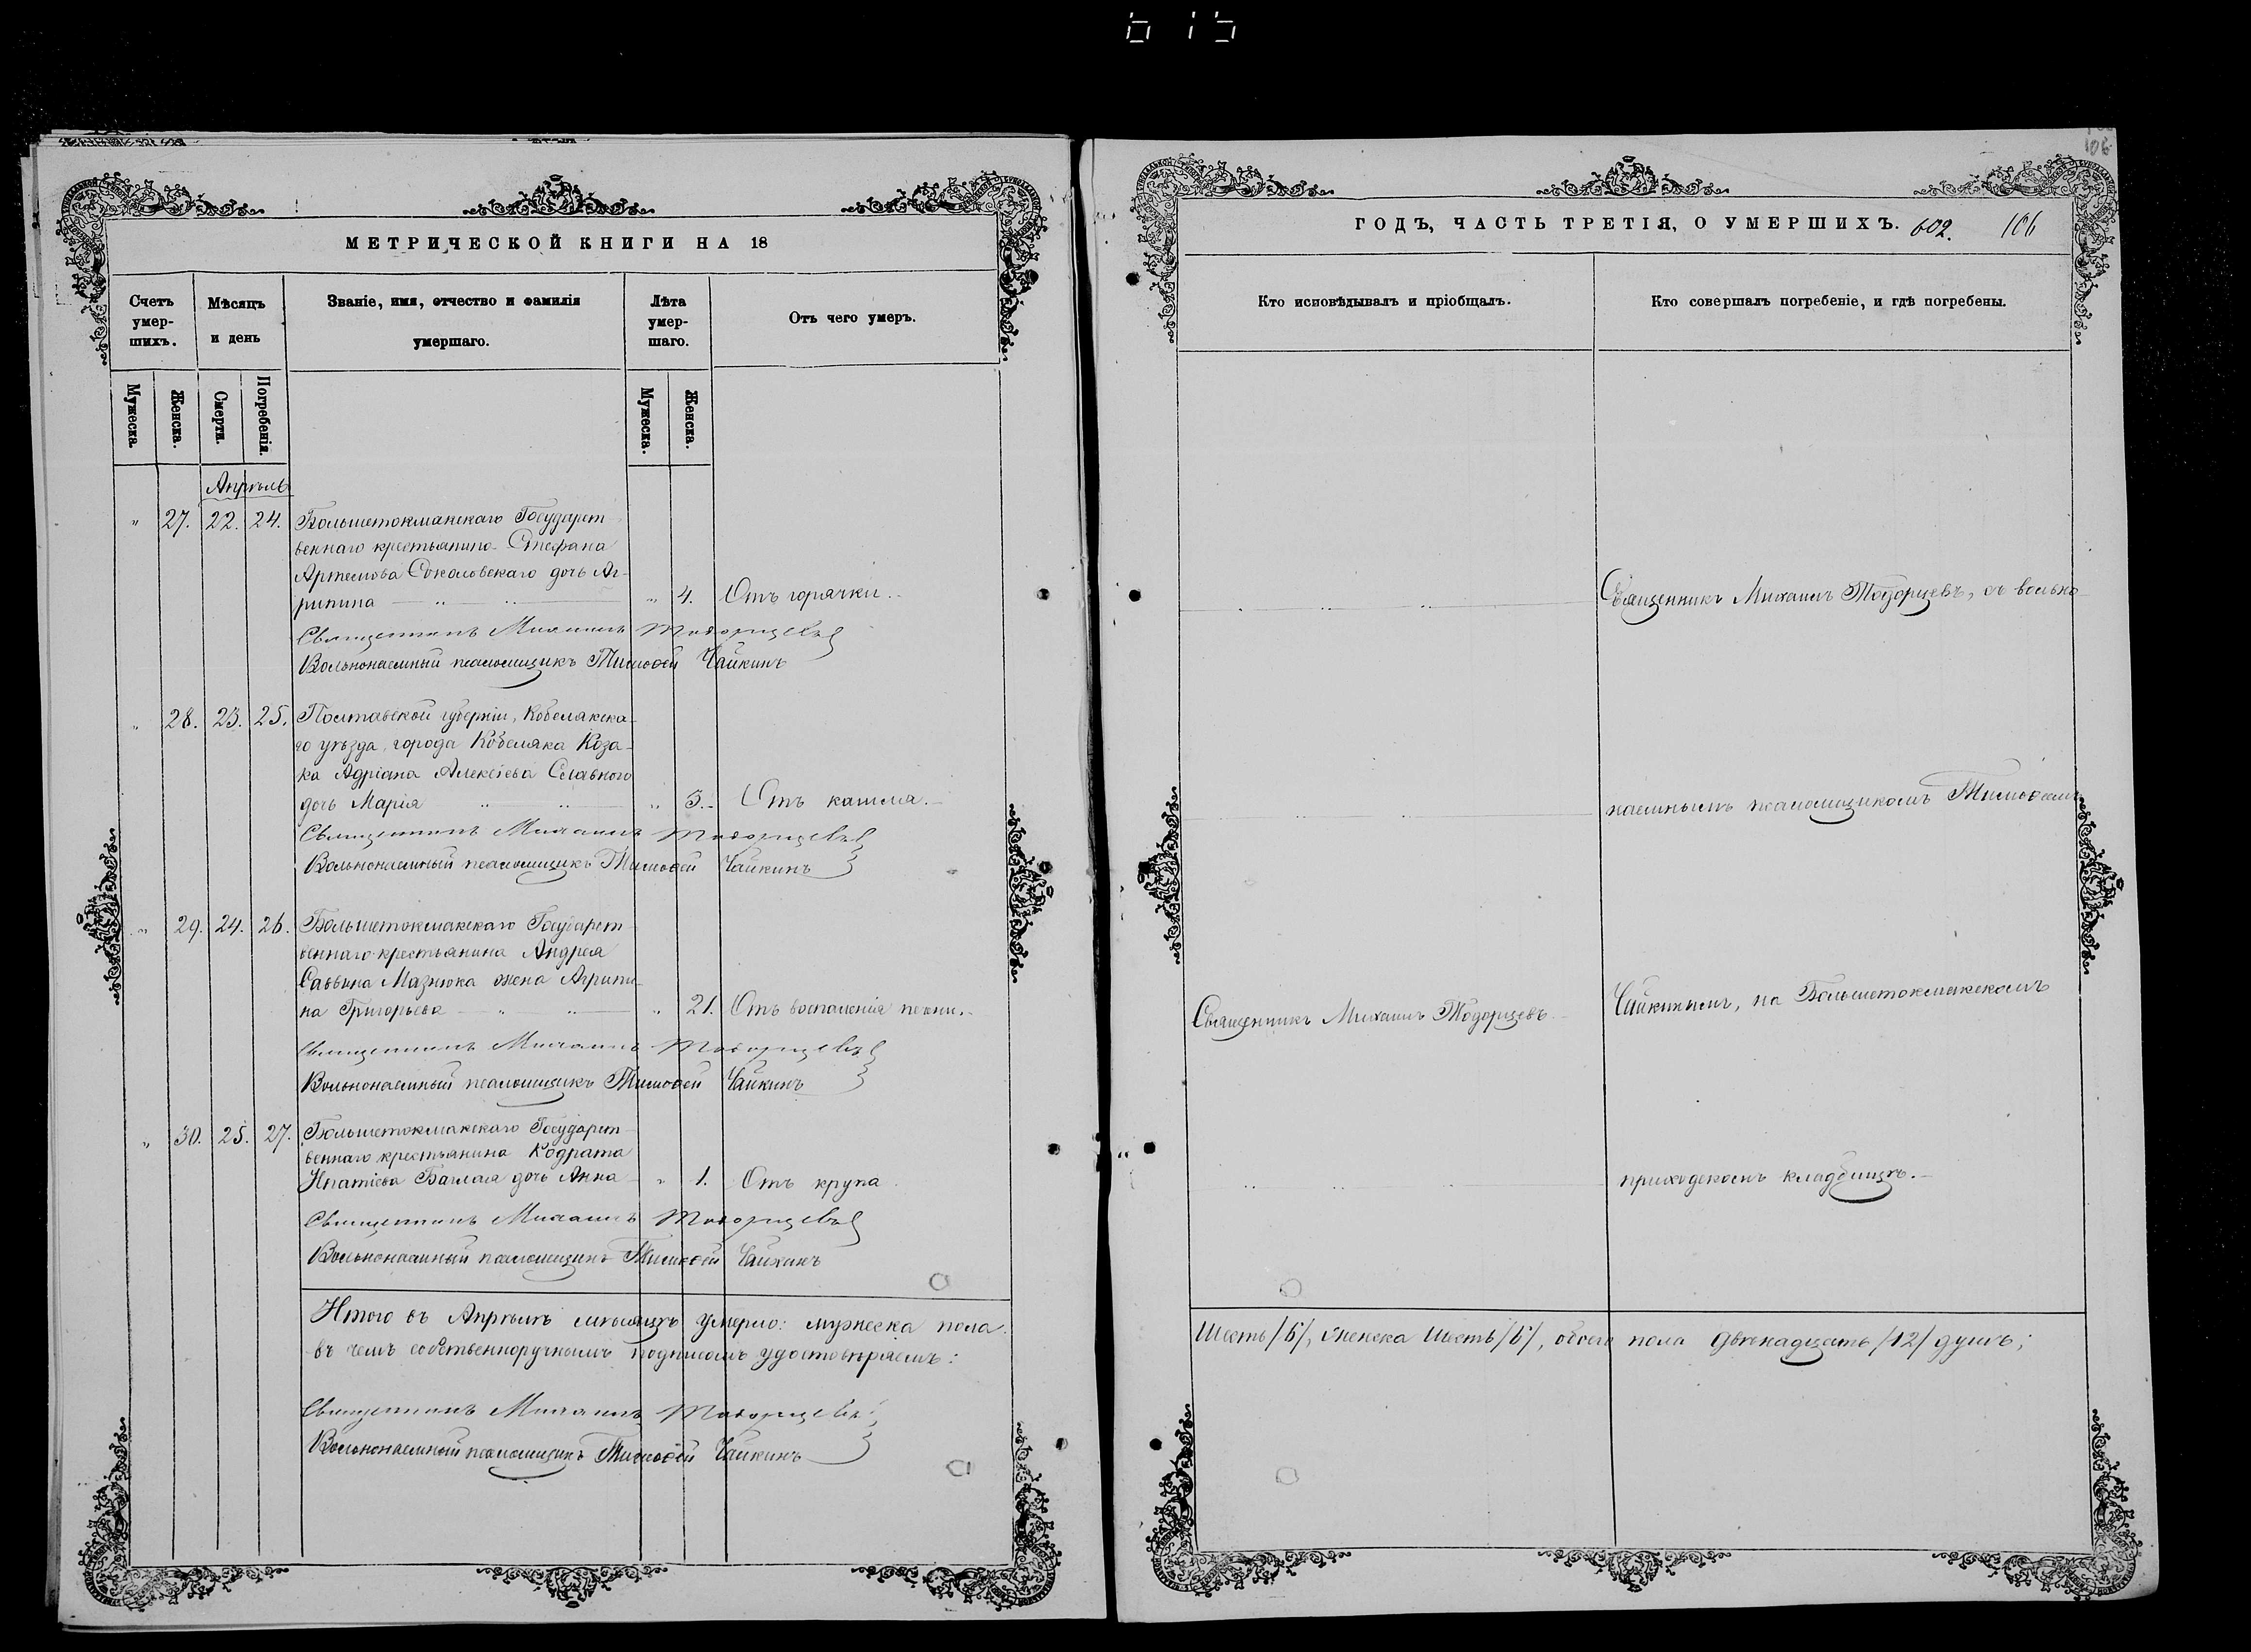 615
106
МЕТРИЧЕСКОЙ КНИГИ НА 18
ГОДЪ, ЧАСТЬ ТРЕТІЯ, О УМЕРШИХЪ. 602. 106
Счетъ умер- шихъ.
Мѣсяцъ и день
Званіе, имя, отчество и фамилія умершаго.
Лѣта умер- шаго.
Отъ чего умеръ.
Кто исповѣдывалъ и пріобщалъ.
Кто совершалъ погребеніе, и гдѣ погребены.
Мужеска. Женска. Смерти. Погребенія. Мужеска. Женска.
Апрѣль
" 27. 22. 24. Большетокмакскаго Государст
веннаго крестьянина Стефана
Артемова Соколовскаго дочь Аг-
рипина " 4. Отъ горячки.
Священникъ Михаилъ Тодорцевъ
Вольнонаемный псаломщикъ Тимоѳей Чайкинъ
" 28. 23. 25. Полтавской губерніи, Кобелякска-
го уѣзда, города Кобеляка Коза-
ка Адріана Алексіева Славного
дочь Марія " 3. Отъ кашля.
Священникъ Михаилъ Тодорцевъ
Вольнонаемный псаломщикъ Тимоѳей Чайкинъ
" 29. 24. 26. Большетокмакскаго Государст
веннаго крестьянина Андрея
Саввина Мазнюка жена Агрипи-
на Григорьева " 21. Отъ воспаленія печни.
Священникъ Михаилъ Тодорцевъ
Вольнонаемный псаломщикъ Тимоѳей Чайкинъ
" 30. 25. 27. Большетокмакскаго Государст
веннаго крестьянина Кодрата
Ипатіева дочь Анна " 1. Отъ крупа
Священникъ Михаилъ Тодорцевъ
Вольнонаемный псаломщикъ Тимоѳей Чайкинъ
Итого въ Апрѣлѣ мѣсяцѣ умерло: мужеска пола
въ чемъ собственноручнымъ подписомъ удостовѣряемъ:
Священникъ Михаилъ Тодорцевъ
Вольнонаемный псаломщикъ Тимоѳей Чайкинъ
Священникъ Михаилъ Тодорцевъ, съ вольно
наемнымъ псаломщикомъ Тимоѳеемъ
Священникъ Михаилъ Тодорцевъ
Чайкинымъ, на Большетокмакскомъ
приходскомъ кладбищѣ.
Шесть /6/, женска шесть /6/, обоего пола двѣнадцать /12/ душъ;